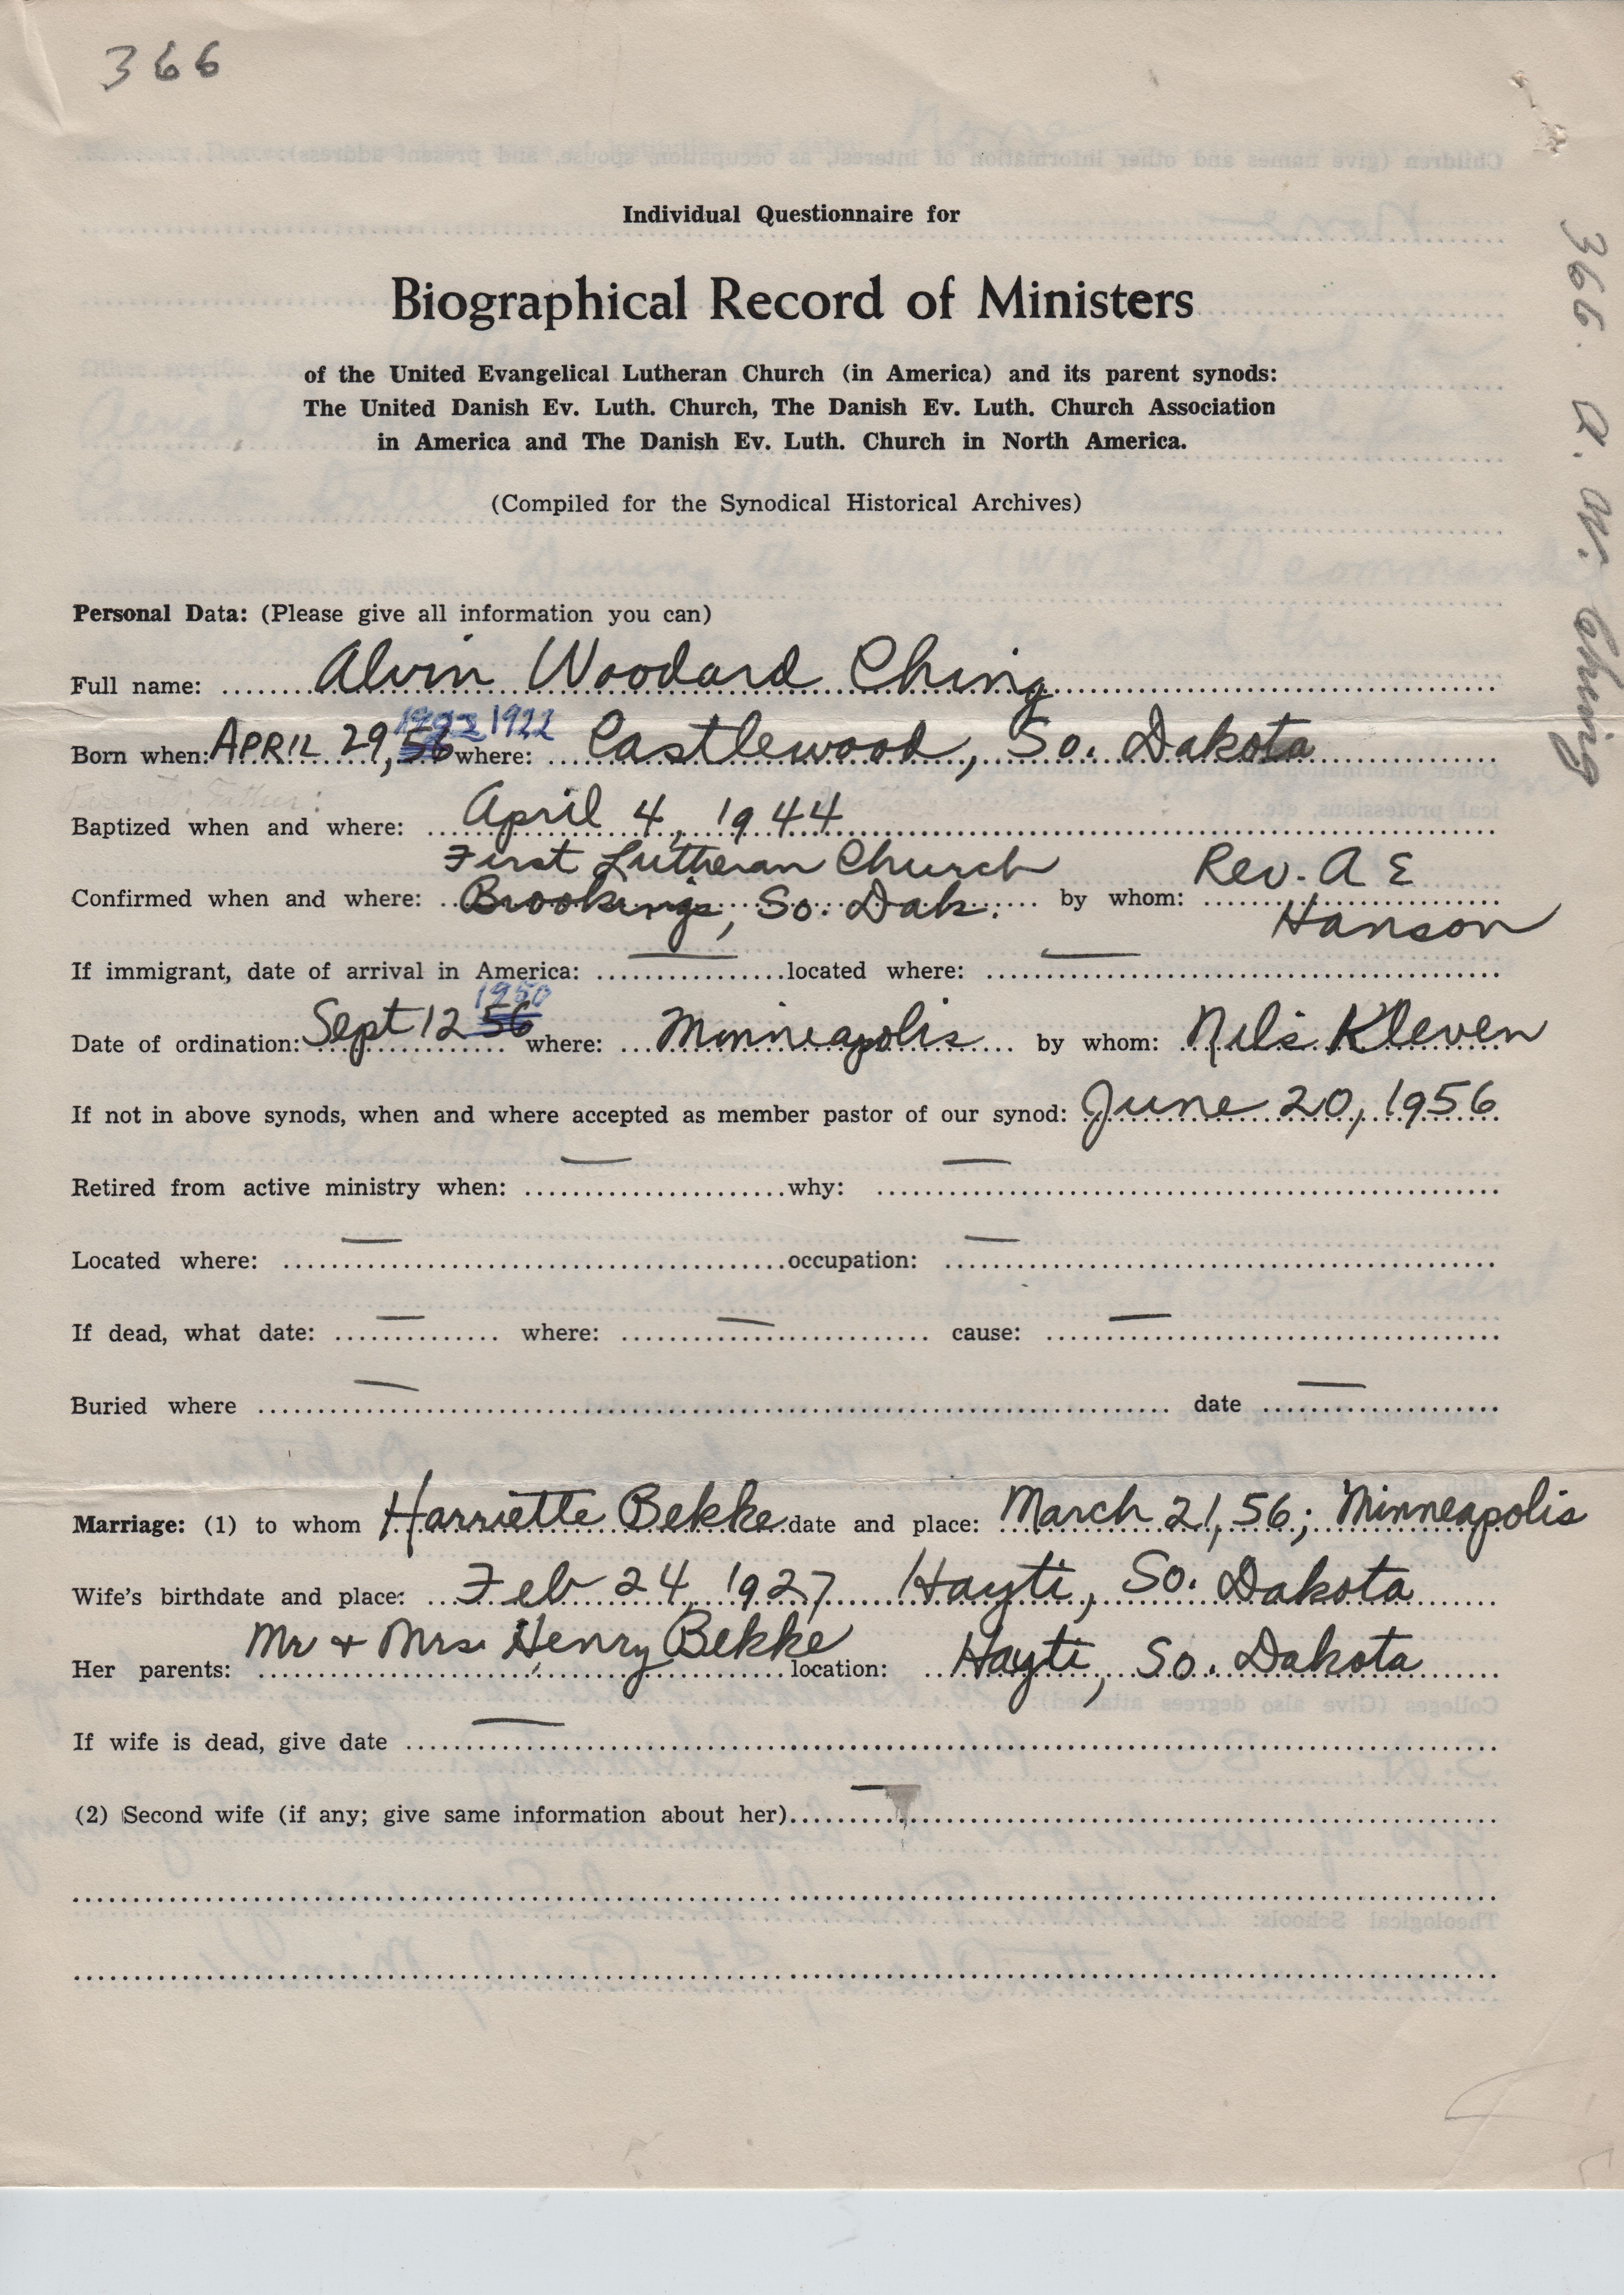 366
366. A. W. Ching
Individual Questionnaire for
Biographical Record of Ministers
of the United Evangelical Lutheran Church (in America) and its parent synods:
The United Danish Ev. Luth. Church, The Danish Ev. Luth. Church Association
in America and The Danish Ev. Luth. Church in North America.
(Compiled for the Synodical Historical Archives)
Personal Data: (Please give all information you can)
Full name: Alvin Woodard Ching
1922 1922
Born when: APRIL 29, 56 where: Castlewood, So. Dakota
Parents: Father:
Baptized when and where: April 4, 1944
First Lutheran Church Rev. A E
Confirmed when and where: Brookings, So. Dak. by whom: Hanson
If immigrant, date of arrival in America: — located where: —
1950
Date of ordination: Sept 12 56 where: Minneapolis by whom: Nils Kleven
If not in above synods, when and where accepted as member pastor of our synod: June 20, 1956
Retired from active ministry when: — why: —
Located where: — occupation: —
If dead, what date: — where: — cause: —
Buried where — date —
Marriage: (1) to whom Harriette Bekke date and place: March 21, 56; Minneapolis
Wife's birthdate and place: Feb 24, 1927 Hayti, So. Dakota
Her parents: Mr + Mrs. Henry Bekke location: Hayti, So. Dakota
If wife is dead, give date —
(2) Second wife (if any; give same information about her) —